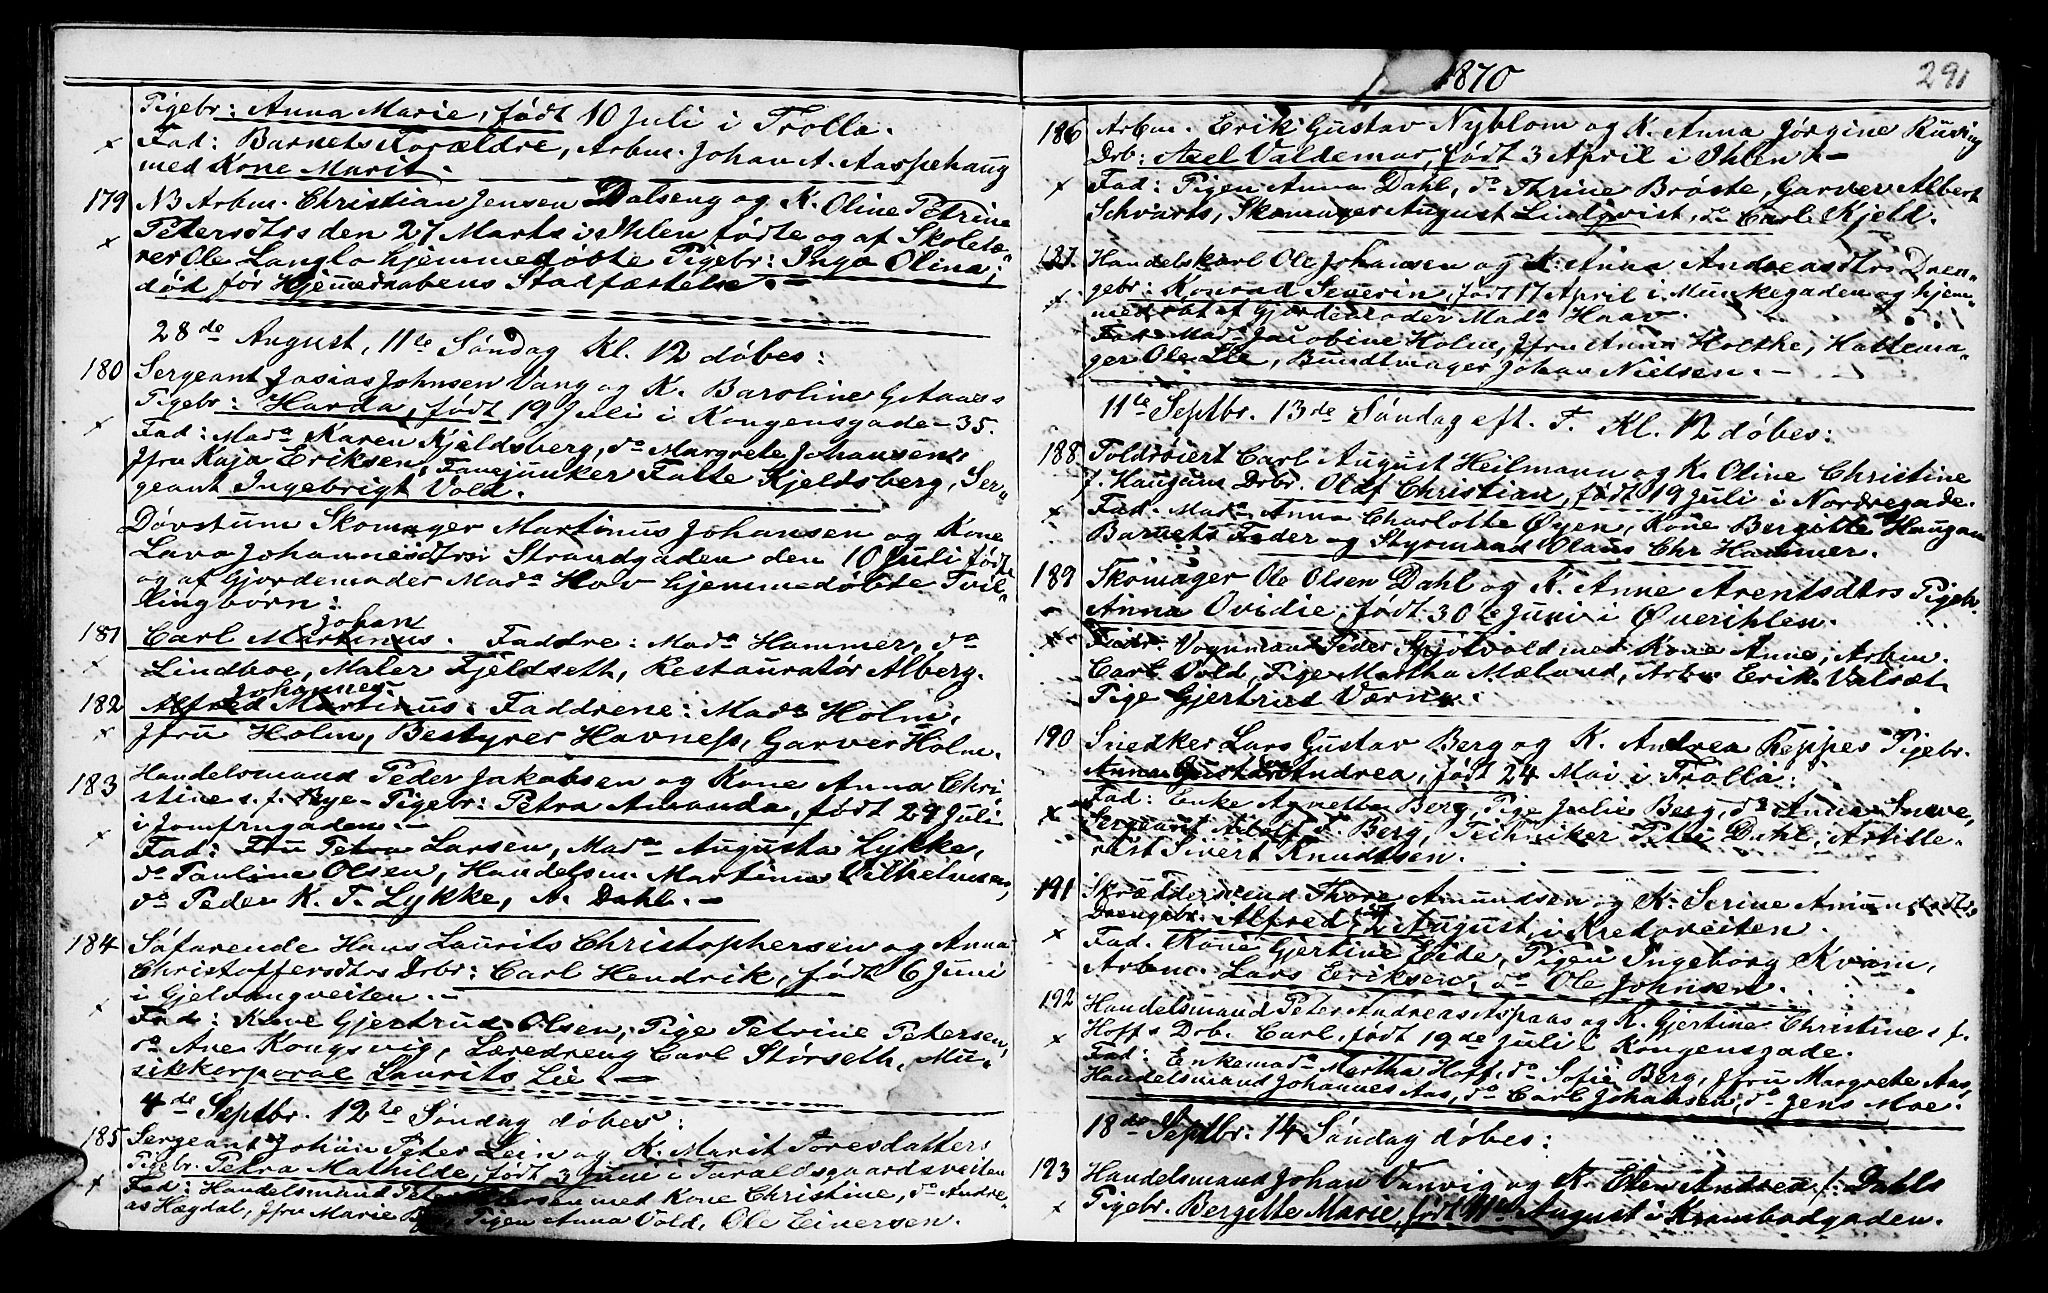 Pigebr: Anna Marie, født 10 Juli i Trolla.
× Fad: Barnets Forældre, Arbm. Johan A. Aaspehaug
med Kone Marit.
179 NB Arbm. Christian Jensen Dalseng og K. Oline Petrine
Petersdtrs den 27 Marts i Ihlen fødte og af Skolelæ-
× rer Ole Langlo hjemmedøbte Pigebr: Inga Olina;
død før Hjemmedaabens Stadfæstelse. —
28de August, 11te Søndag Kl. 12 døbes:
180 Sergeant Josias Johnsen Vang og K. Baroline G. Aaas
Pigebr: Harda, født 19 Juli i Kongensgade - 35.
× Fad: Mada Karen Kjeldsberg, do Margrete Johansen,
Jfru Kaja Eriksen, Fanejunker Falle Kjeldsberg, Ser-
geant Ingebrigt Vold.
Døvstum Skomager Martinus Johansen og Kone
Lava Johannesdtrs i Strandgaden den 10 Juli fødte
og af Gjordemoder Mada Hov hjemmedøbte Tvil-
lingbørn:
Johan
181 Carl Martinus. Faddre: Mada Hammer, do
× Lindboe, Maler Fjeldseth, Restauratør Alberg.
Johannes
182 Alfred Martinus. Faddrene: Mada Holm,
× Jfru Holm, Bestyrer Havness, Garver Holm.
183 Handelsmand Peder Jakobsen og Kone Anna Chri-
stine s. f. Bye - Pigebr: Petra Amanda, født 29 Juli
i Jomfrugaden. —
× Fad: Fru Petra Larsen, Mada Augusta Lykke,
do Pauline Olsen, Handelsm. Martinus Vilhelmsen,
do Peder K. T. Lykke, A. Dahl. —
184 Søfarende Hans Laurits Christophersen og Anna
Christoffersdtrs Drbr: Carl Hendrik, født 6 Juni
× i Gjelvangveiten. —
Fad: Kone Gjertrud Olsen, Pige Petrine Petersen,
do Ane Kongsvig, Læredreng Carl Størseth, Mu-
sikkorporal Laurits Lie. —
4de Septbr. 12te Søndag døbes:
185 Sergeant Johan Peter Lein og K. Marit Toresdatters
Pigebr. Petra Mathilde, født 3 Juni i Taraldsgaardsveiten
× Fad: Handelsmand Peter Petersen med Kone Christine, do Andre-
as Hægdal, Jfru Marie Pigen Anna Vold, Ole Einersen.
1870
291
186 Arbm. Erik Gustav Nyblom og K. Anna Jørgine Ruvig
Drb: Axel Valdemar, født 3 April i Ihlen. —
× Fad: Pigen Anna Dahl, do Thrine Brøste, Garver Albert
Schvarts, Skomager August Lindqvist, do Carl Kjeld.
187 Handelskarl Ole Johansen og K. Anna Andreasdtrs Dren-
× gebr: Konrad Severin, født 17 April i Munkegaden og hjem-
medøbt af Gjordemoder Mada Haav.
Fad: Mada Jacobine Holm, Jfru Anna Holthe, Hattema-
ger Ole Lle, Bundtmager Johan Nielsen. —
11te Septbr. 13de Søndag eft. T. Kl. 12 døbes:
188 Toldrøiert Carl August Heilmann og K. Oline Christine
f. Haugans Drbr. Olaf Christian, født 19 Juli i Nordregade.
× Fad. Mada Anna Charlotte Øyen, Kone Bergitte Haugan
Barnets Fader og Styrmand Olaus Chr Hammer.
189 Skomager Ole Olsen Dahl og K. Anne Arentsdtrs Pigebr.
Anna Ovidie, født 30te Juni i Øverihlen.
× Fadr: Vognmand Peder Skjølvold med Kone Anne, Arbm.
Carl Vold, Pige Martha Mæland, Arbm Erik Valsæt.
Pige Gjertrud Værn.
190 Snedker Lars Gustav Berg og K. Andrea Reppes Pigebr.
Anna Gustava Andrea, født 24 Mai i Trolla:
× Fad: Enke Agnette Berg, Pige Julie Berg, do Anna Sneve,
Sergeant Adolf F. Berg, Techniker Peter Dahl, Artille-
rist Sivert Knudtsen.
191 Skræddersvend Thore Amundsen og K. Serine Amundsdtrs
Drengebr. Alfred, 2 August, i Kredsveiten.
× Fad. Kone Gjertine Eide, Pigen Ingeborg Kvam,
Arbm. Lars Eriksen, do Ole Johnsen.
192 Handelsmand Peter Andreas Aspaas og K. Gjertine Christine s. f.
Hoffs Drb. Carl, født 19de Juli i Kongensgade.
× Fad: Enkemada Martha Hoff, do Sofie Berg, Jfru Margrete Aas,
Handelsmand Johannes Aas, do Carl Johansen, do Jens Moe.
18de Septbr. 14 Søndag døbes:
193 Handelsmand Johan Vanvig og K. Elen Andrea f. Dahls
× Pigebr. Bergitte Marie, født 11te August i Krambodgaden.